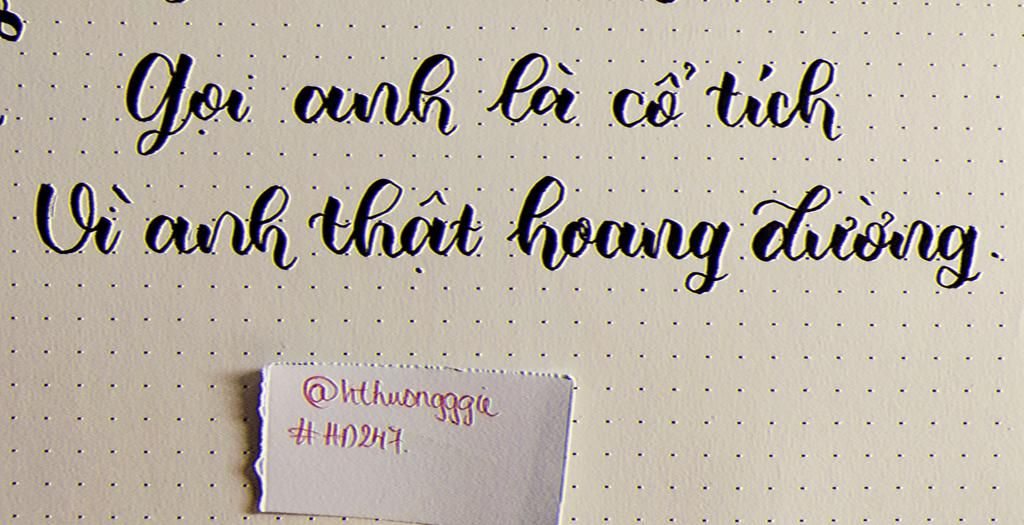 Gọi anh là cổ tích
Vì anh thật hoang đường.
@hthuongggie
#HD247